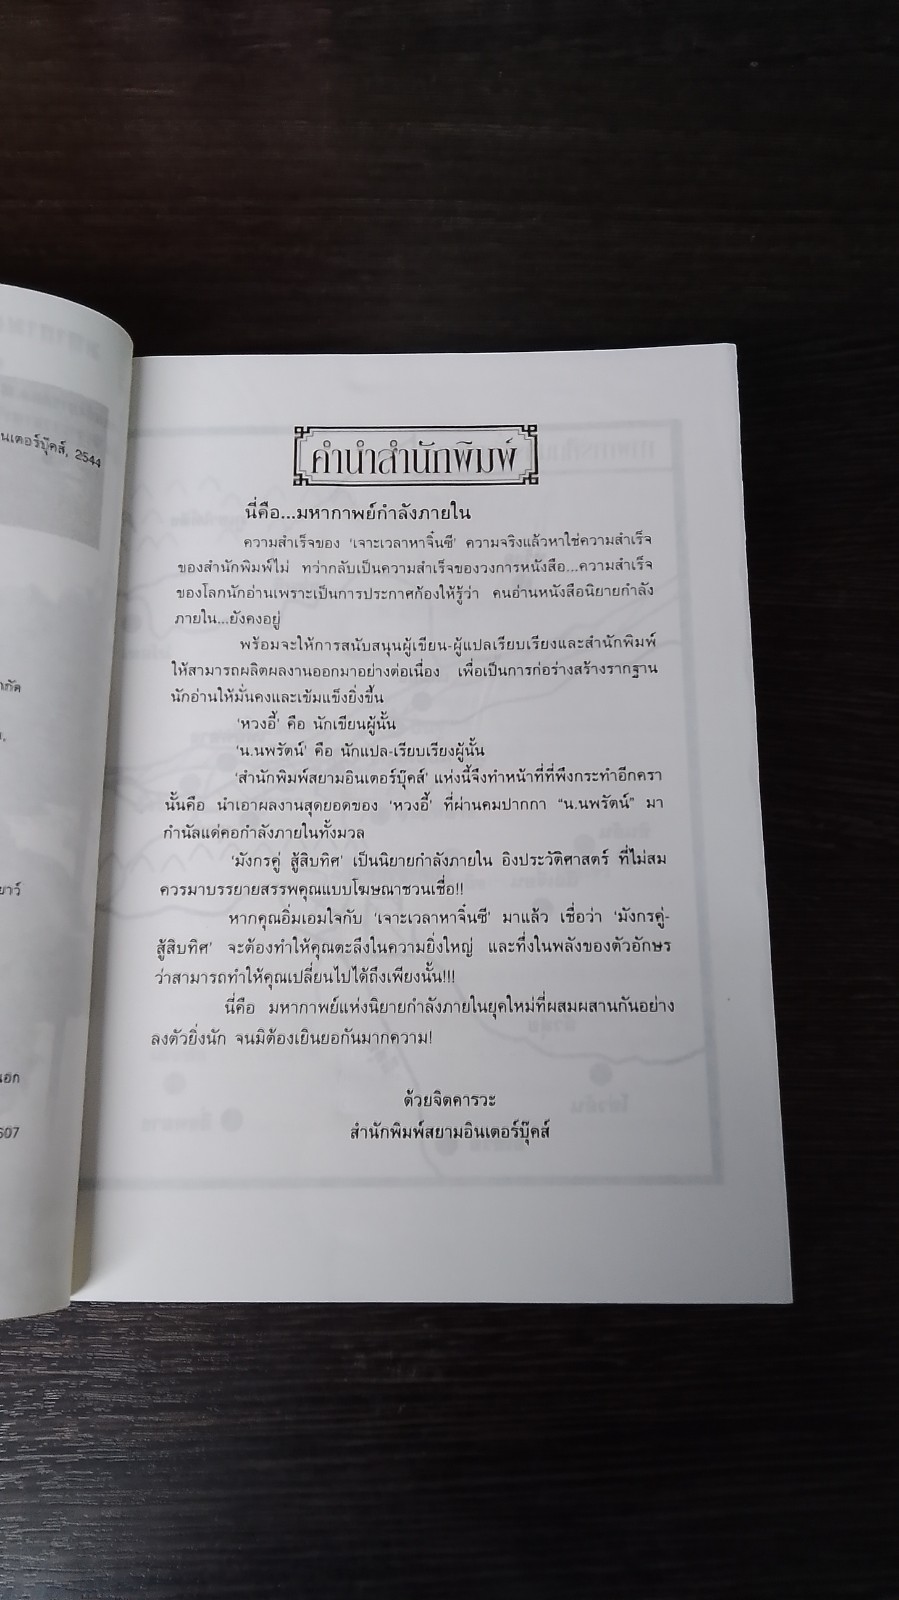 นเตอร์บุ๊คส์, 2544
คำนำสำนักพิมพ์
นี่คือ...มหากาพย์กำลังภายใน
ความสำเร็จของ ‘เจาะเวลาหาจิ๋นซี’ ความจริงแล้วหาใช่ความสำเร็จ
ของสำนักพิมพ์ไม่ ทว่ากลับเป็นความสำเร็จของวงการหนังสือ...ความสำเร็จ
ของโลกนักอ่านเพราะเป็นการประกาศก้องให้รู้ว่า คนอ่านหนังสือนิยายกำลัง
ภายใน...ยังคงอยู่
พร้อมจะให้การสนับสนุนผู้เขียน-ผู้แปลเรียบเรียงและสำนักพิมพ์
ให้สามารถผลิตผลงานออกมาอย่างต่อเนื่อง เพื่อเป็นการก่อร่างสร้างรากฐาน
นักอ่านให้มั่นคงและเข้มแข็งยิ่งขึ้น
‘หวงอี้’ คือ นักเขียนผู้นั้น
‘น.นพรัตน์’ คือ นักแปล-เรียบเรียงผู้นั้น
‘สำนักพิมพ์สยามอินเตอร์บุ๊คส์’ แห่งนี้จึงทำหน้าที่ที่พึงกระทำอีกครา
นั้นคือ นำเอาผลงานสุดยอดของ ‘หวงอี้’ ที่ผ่านคมปากกา “น.นพรัตน์” มา
กำนัลแด่คอกำลังภายในทั้งมวล
‘มังกรคู่ สู้สิบทิศ’ เป็นนิยายกำลังภายใน อิงประวัติศาสตร์ ที่ไม่สม
ควรมาบรรยายสรรพคุณแบบโฆษณาชวนเชื่อ!!
หากคุณอิ่มเอมใจกับ ‘เจาะเวลาหาจิ๋นซี’ มาแล้ว เชื่อว่า ‘มังกรคู่-
สู้สิบทิศ’ จะต้องทำให้คุณตะลึงในความยิ่งใหญ่ และทึ่งในพลังของตัวอักษร
ว่าสามารถทำให้คุณเปลี่ยนไปได้ถึงเพียงนั้น!!!
นี่คือ มหากาพย์แห่งนิยายกำลังภายในยุคใหม่ที่ผสมผสานกันอย่าง
ลงตัวยิ่งนัก จนมิต้องเยินยอกันมากความ!
ด้วยจิตคารวะ
สำนักพิมพ์สยามอินเตอร์บุ๊คส์